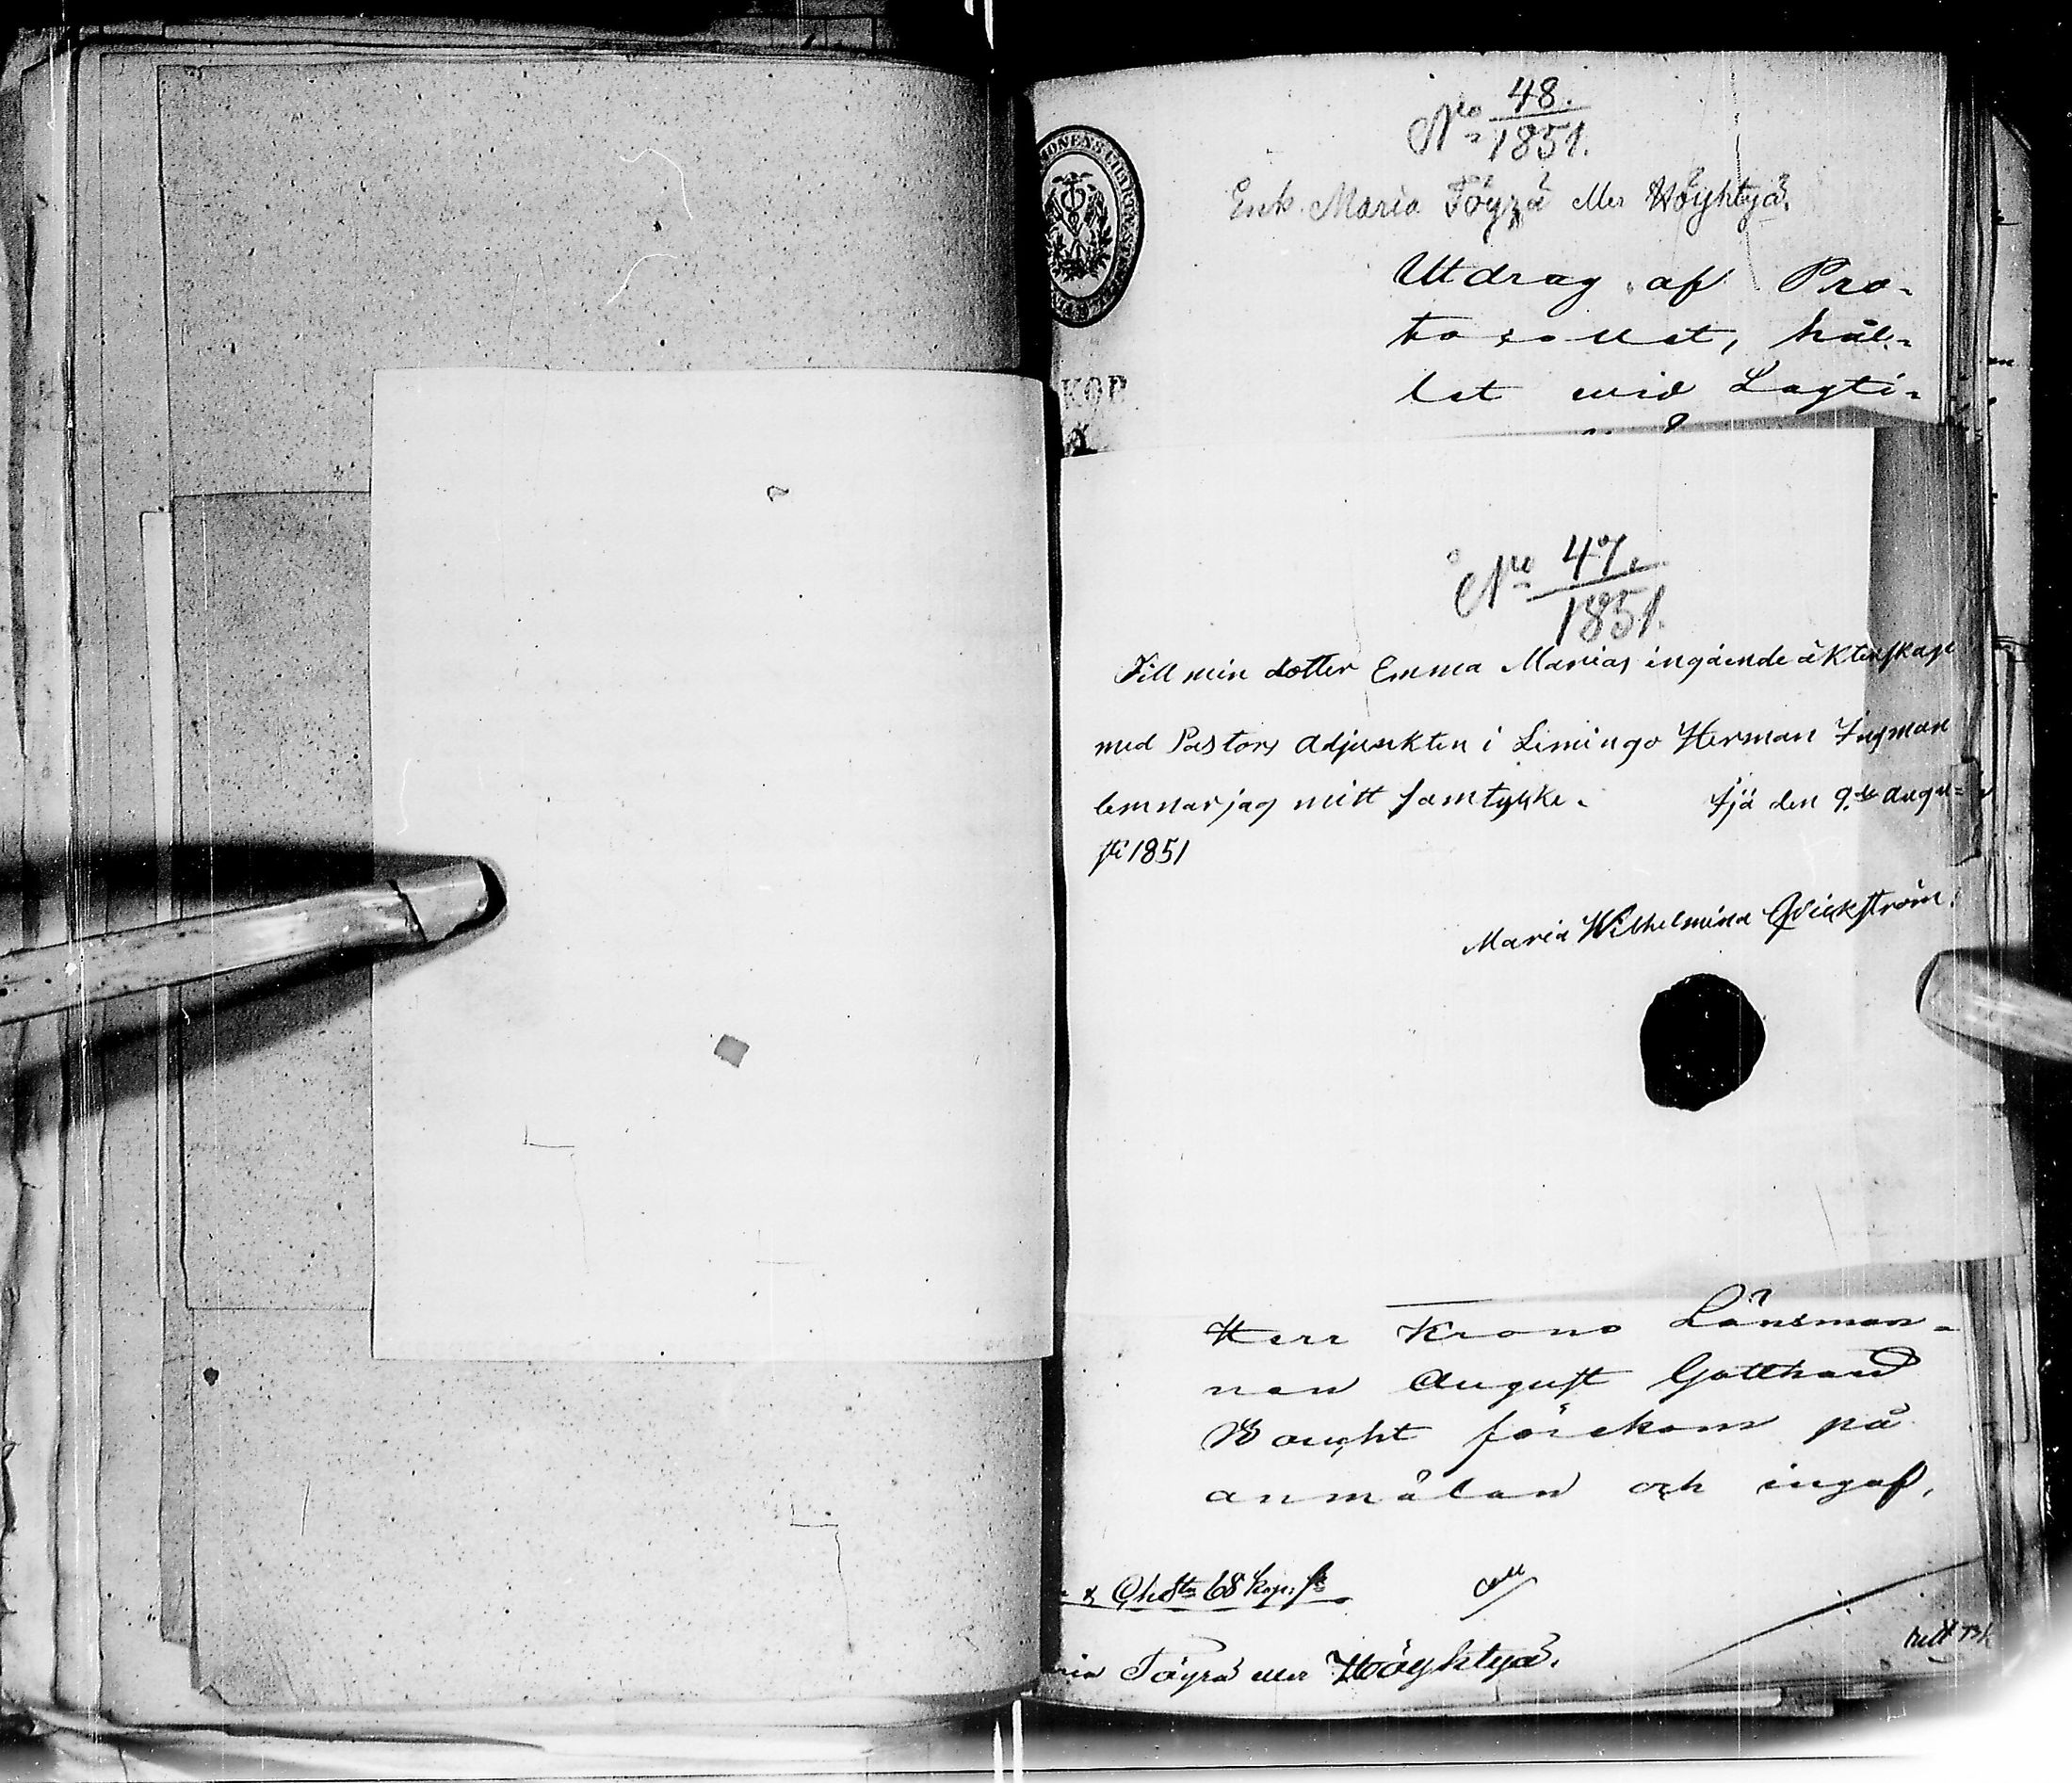 No 48.
1851.
Enk. Maria Töyrä eller Höyhtyä.
Utdrag af Pro-
tocollet, hål-
let wid Lagti-
KOP
No 47.
1851.
Till min dotter Emma Marias ingående äktenskap
med Pastors Adjunkten i Limingo Herman Ingman
lemnar jag mitt samtykke. Ijå den 9de Augu-
sti 1851
Maria Wilhelmina Qvickström.
Herr Krono Länsman-
nen August Gotthard
Bought förekom på
anmälan och ingaf,
68 kop. sr
ria Töyrä eller Höyhtyä.